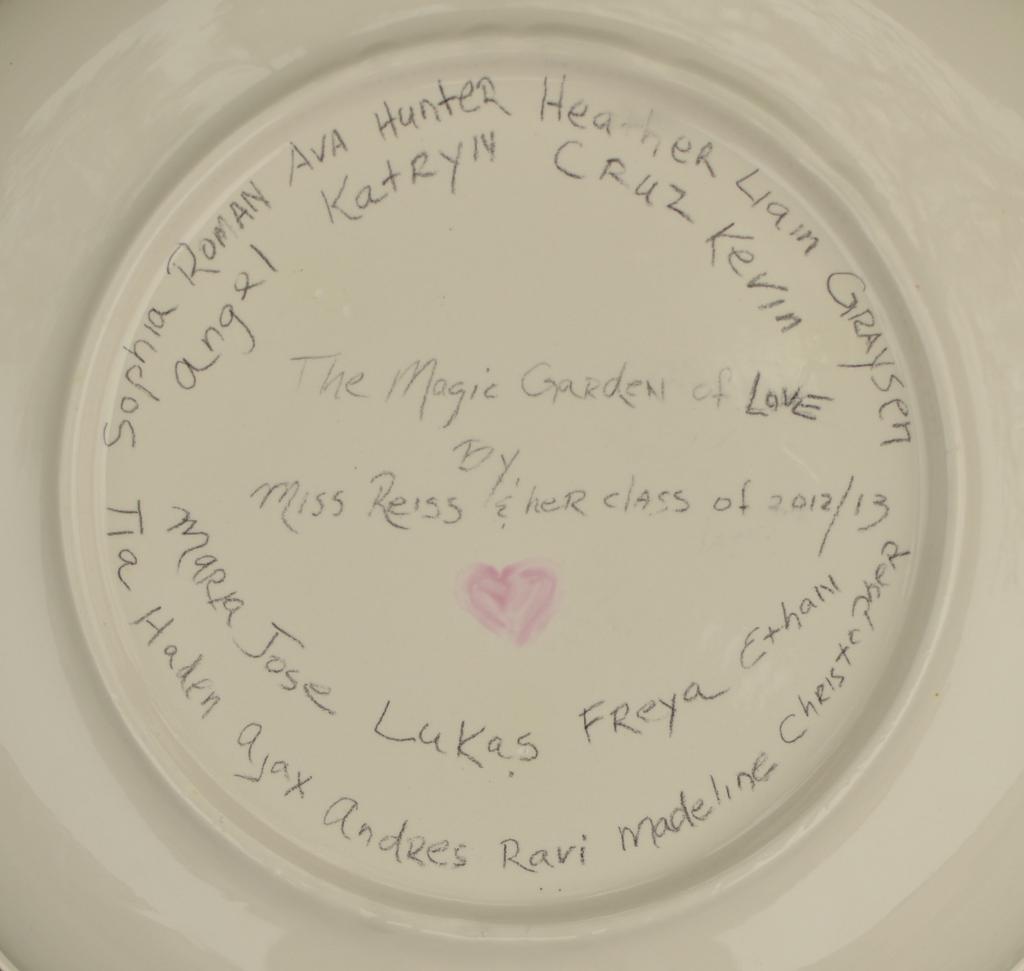 Sophia ROMAN AVA HunteR HeatheR Liam GRAYsen
angel KatRYN CRUZ Kevin
The Magic GaRDEN of LOVE
By
Miss Reiss & heR clASS of 2012/13
MaRia Jose LuKas FReya Ethan
Tia Haden ajax AndRes Ravi Madeline ChRistopheR